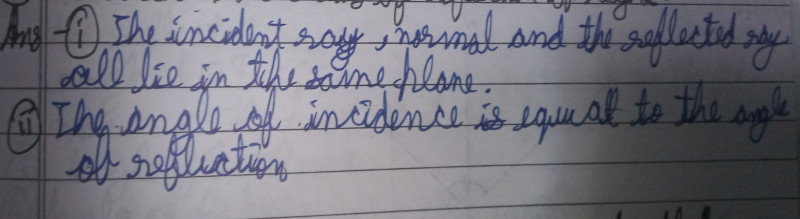 Ans - (i) The incident ray, normal and the reflected ray
all lie in the same plane.
(ii) The angle of incidence is equal to the angle
of reflection